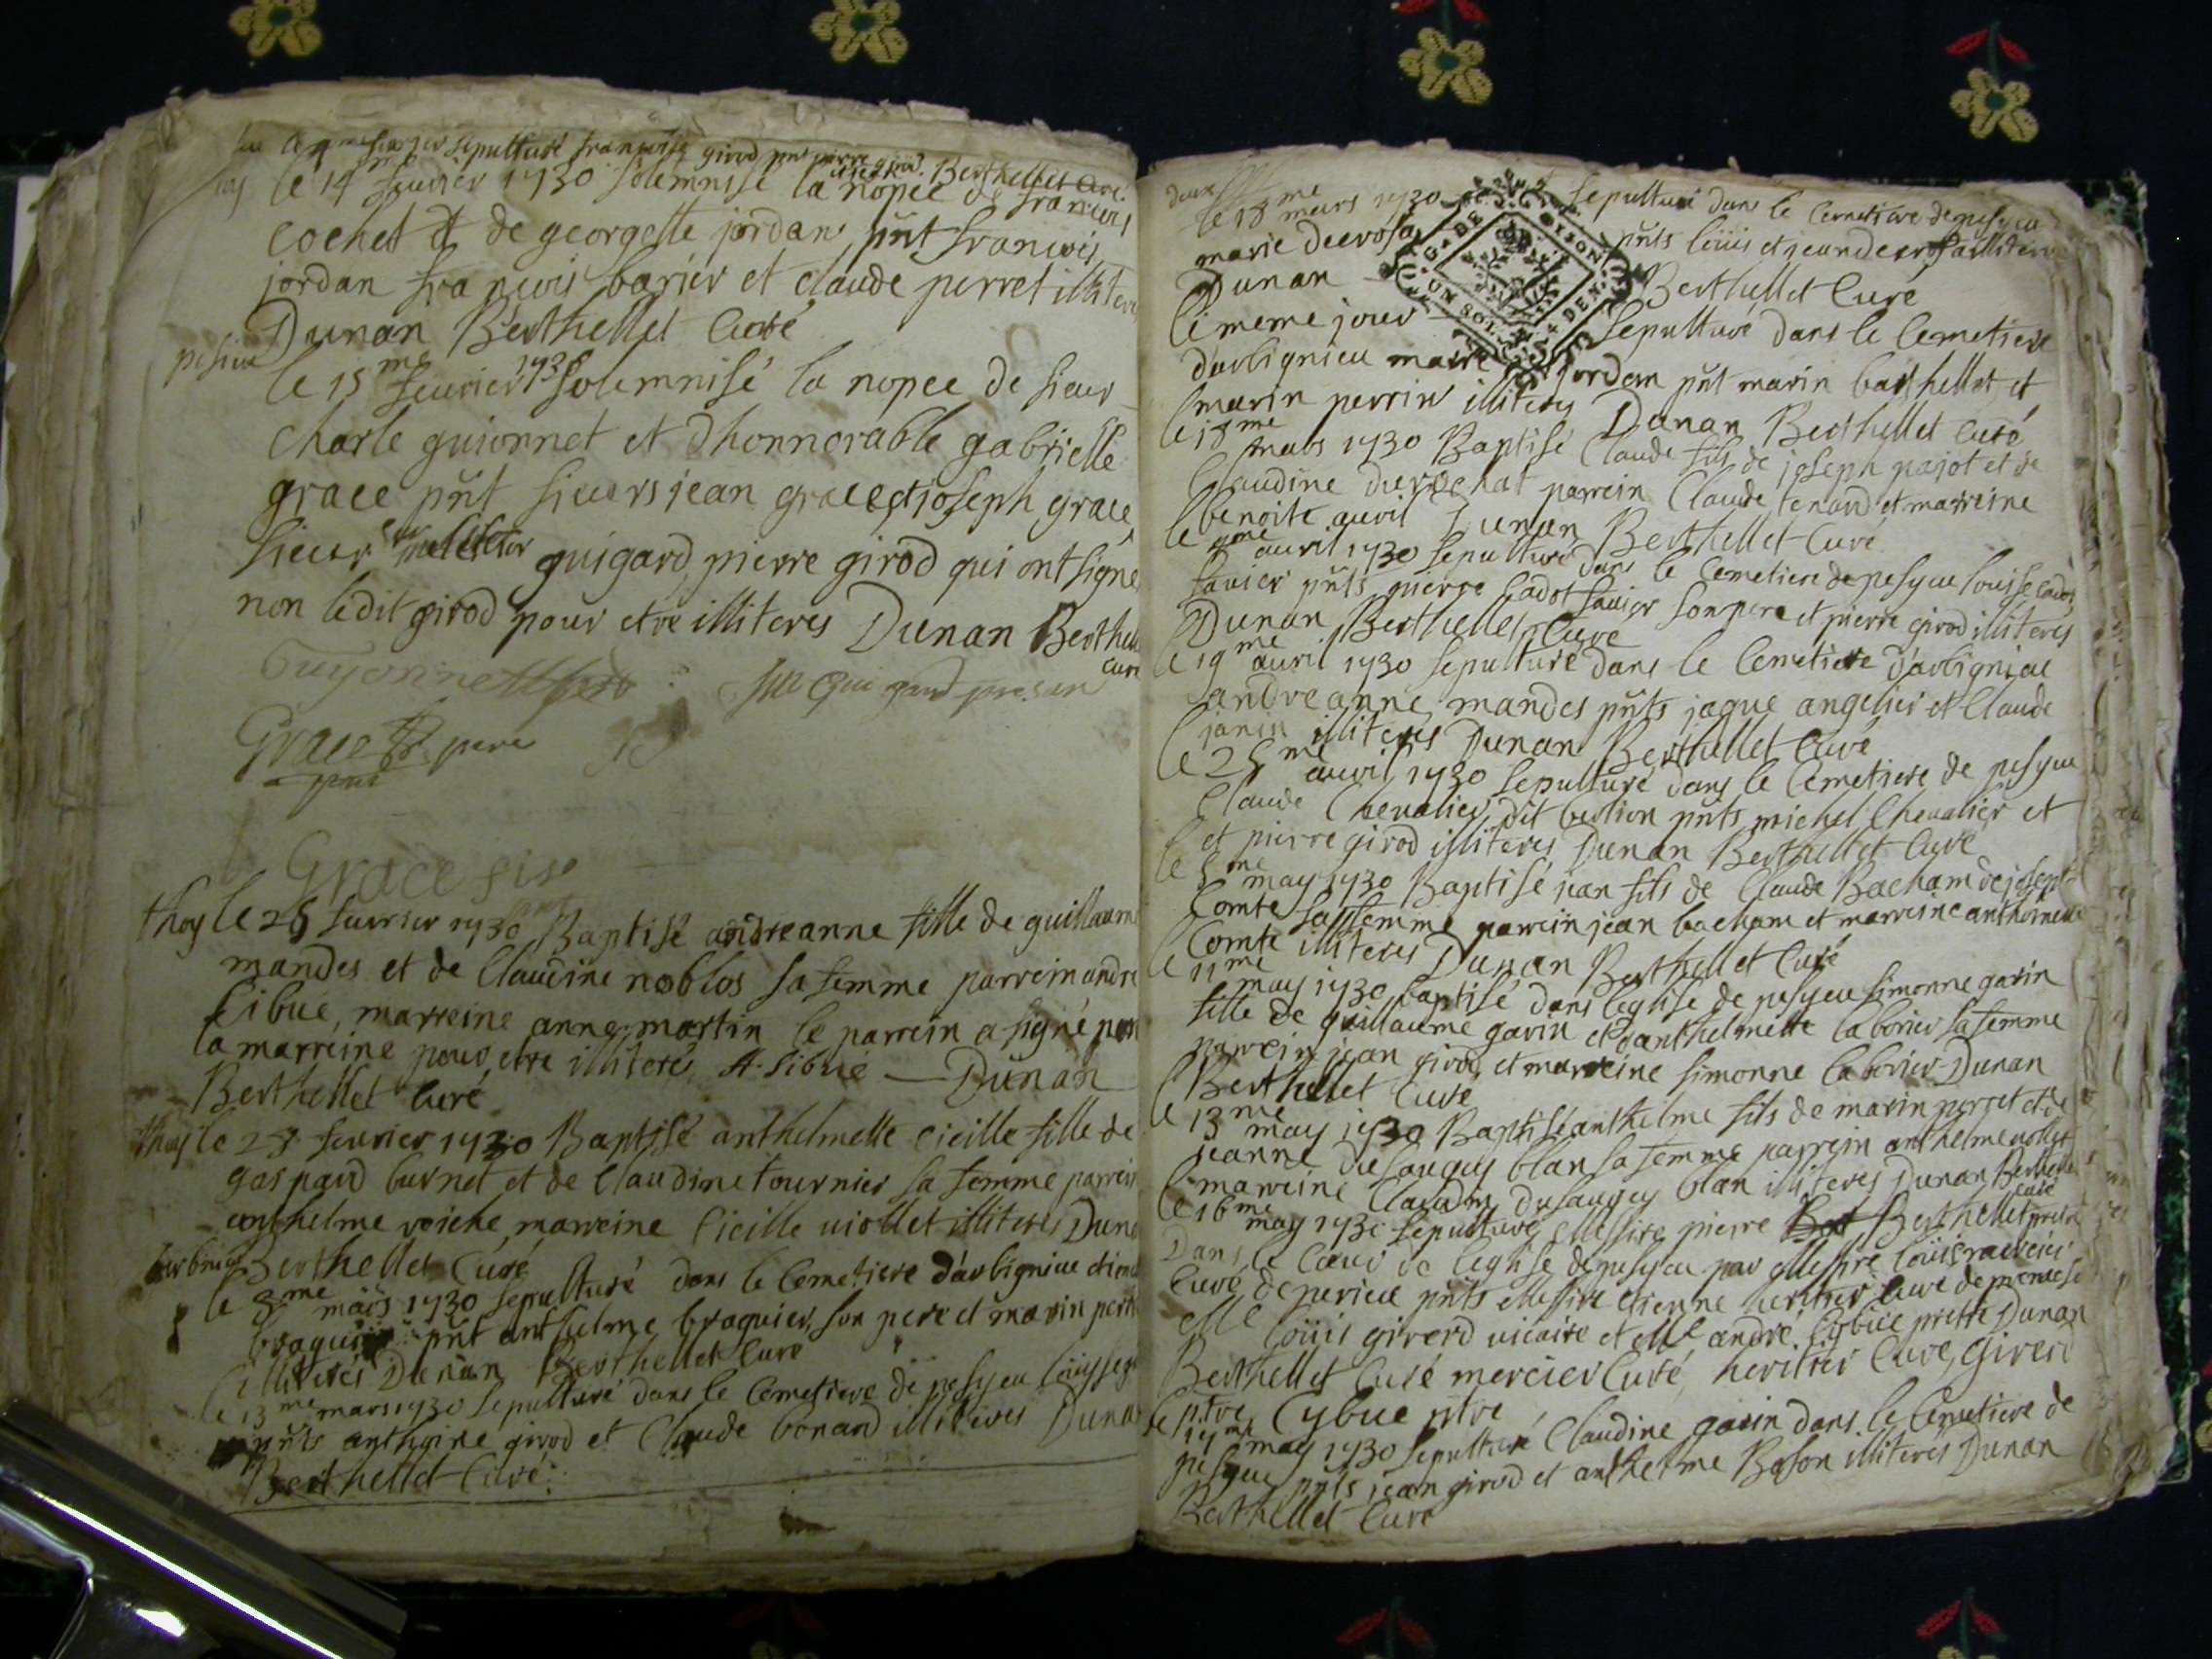 sepulturé francoise girod pnt pierre girod Berthellet curé
le 14me feurier 1730 solemnisé la nopce de francois
cochet et de georgette jordan pnt francois
jordan francois barier et claude perret illiteres
Dunan Berthellet Curé
pesieu
le 15me feurier 1730 solemnisé la nopce de sieur
charle guionnet et dhonnorable gabrielle
grace pnt sieurs jean grace et joseph grace
sieur guigard pierre girod qui ont signé
non ledit girod pour etre illiteres Dunan Berthellet
curé
Guyonnet guigard present
Grace pere
Grace fils
thoy le 26 feurier 1730 Baptisé andreanne fille de guillaume
mandes et de Claudine noblos sa femme parrein andre
Sibue, marreine anne martin le parrein a signé non
la marreine pour etre illiteré A. Sibue — Dunan
Berthellet Curé
thoy le 28 feurier 1730 Baptisé anthelmette cicille fille de
gaspard burnet et de Claudine tournier sa femme parrein
anthelme reiche marreine Cicille uiollet illiteres Dunan
Berthellet Curé
le 8me mars 1730 sepulturé dans le Cemetiere d'arbignieu etienne
braquier pnt anthelme braquier son pere et marin perret
illiterés Dunan Berthellet Curé
le 13me mars 1730 sepulturé dans le Cemetiere de pesyeu
pnts anthoine girod et Claude bonard illiteres Dunan
Berthellet Curé
le 18me mars 1730 sepulturé dans le Cemetiere de pesyeu
marie decrosa pnts loüis et jean decrosa illiteres
Dunan Berthellet Curé
le meme jour sepulturé dans le Cemetiere
darbignieu marie jordan pnt marin barthellet et
marin perrin illiteres Dunan Berthellet Curé
le 18me mars 1730 Baptisé Claude fils de joseph pajot et de
Claudine durochat parrein Claude tenand et marreine
benoite auril Dunan Berthellet Curé
le auril 1730 sepulturé dans le Cemetiere de pesyeu louise cadot
sauier pnts pierre Cadot sauier son pere et pierre girod illiteres
Dunan Berthellet Curé
le 19me auril 1730 sepulturé dans le Cemetiere d'arbignieu
andreanne mandes pnts jaque angelier et Claude
janin illiteres Dunan Berthellet Curé
le 25me auril 1730 sepulturé dans le Cemetiere de pesyeu
Claude Cheualier dit berlion pnts michel Cheualier et
et pierre girod illiteres Dunan Berthellet Curé
le 5me may 1730 Baptisé jean fils de Claude Bacham de josephte
Comte sa femme parrein jean bacham et marreine anthoinette
Comte illiteres Dunan Berthellet Curé
le 11me may 1730 baptisé dans leglise de pesyeu simonne gavin
fille de guillaume gavin et danthelmette laborier sa femme
parrein jean girod et marreine simonne laborier Dunan
Berthellet Curé
le 13me may 1730 Baptisé anthelme fils de marin perret et de
jeanne du saugey blan sa femme parrein anthelme
marreine Claudine du saugey blan illiteres Dunan Berthellet
curé
le 16me may 1730 sepulturé Messire pierre Berthellet pretre
Dans le Cœur de leglise de pesyeu par Messire loüis mercier
Curé de perieu pnts Messire etienne heritier Curé de premeisel
Mre loüis girerd uicaire et Mre andré Cybue prettre Dunan
Berthellet Curé mercier Curé heritier Curé Girerd
ptre, Cybue ptre
le 17me may 1730 sepulturé Claudine gavin dans le Cemetiere de
pesyeu pnts jean girod et anthelme Boson illiterés Dunan
Berthellet Curé